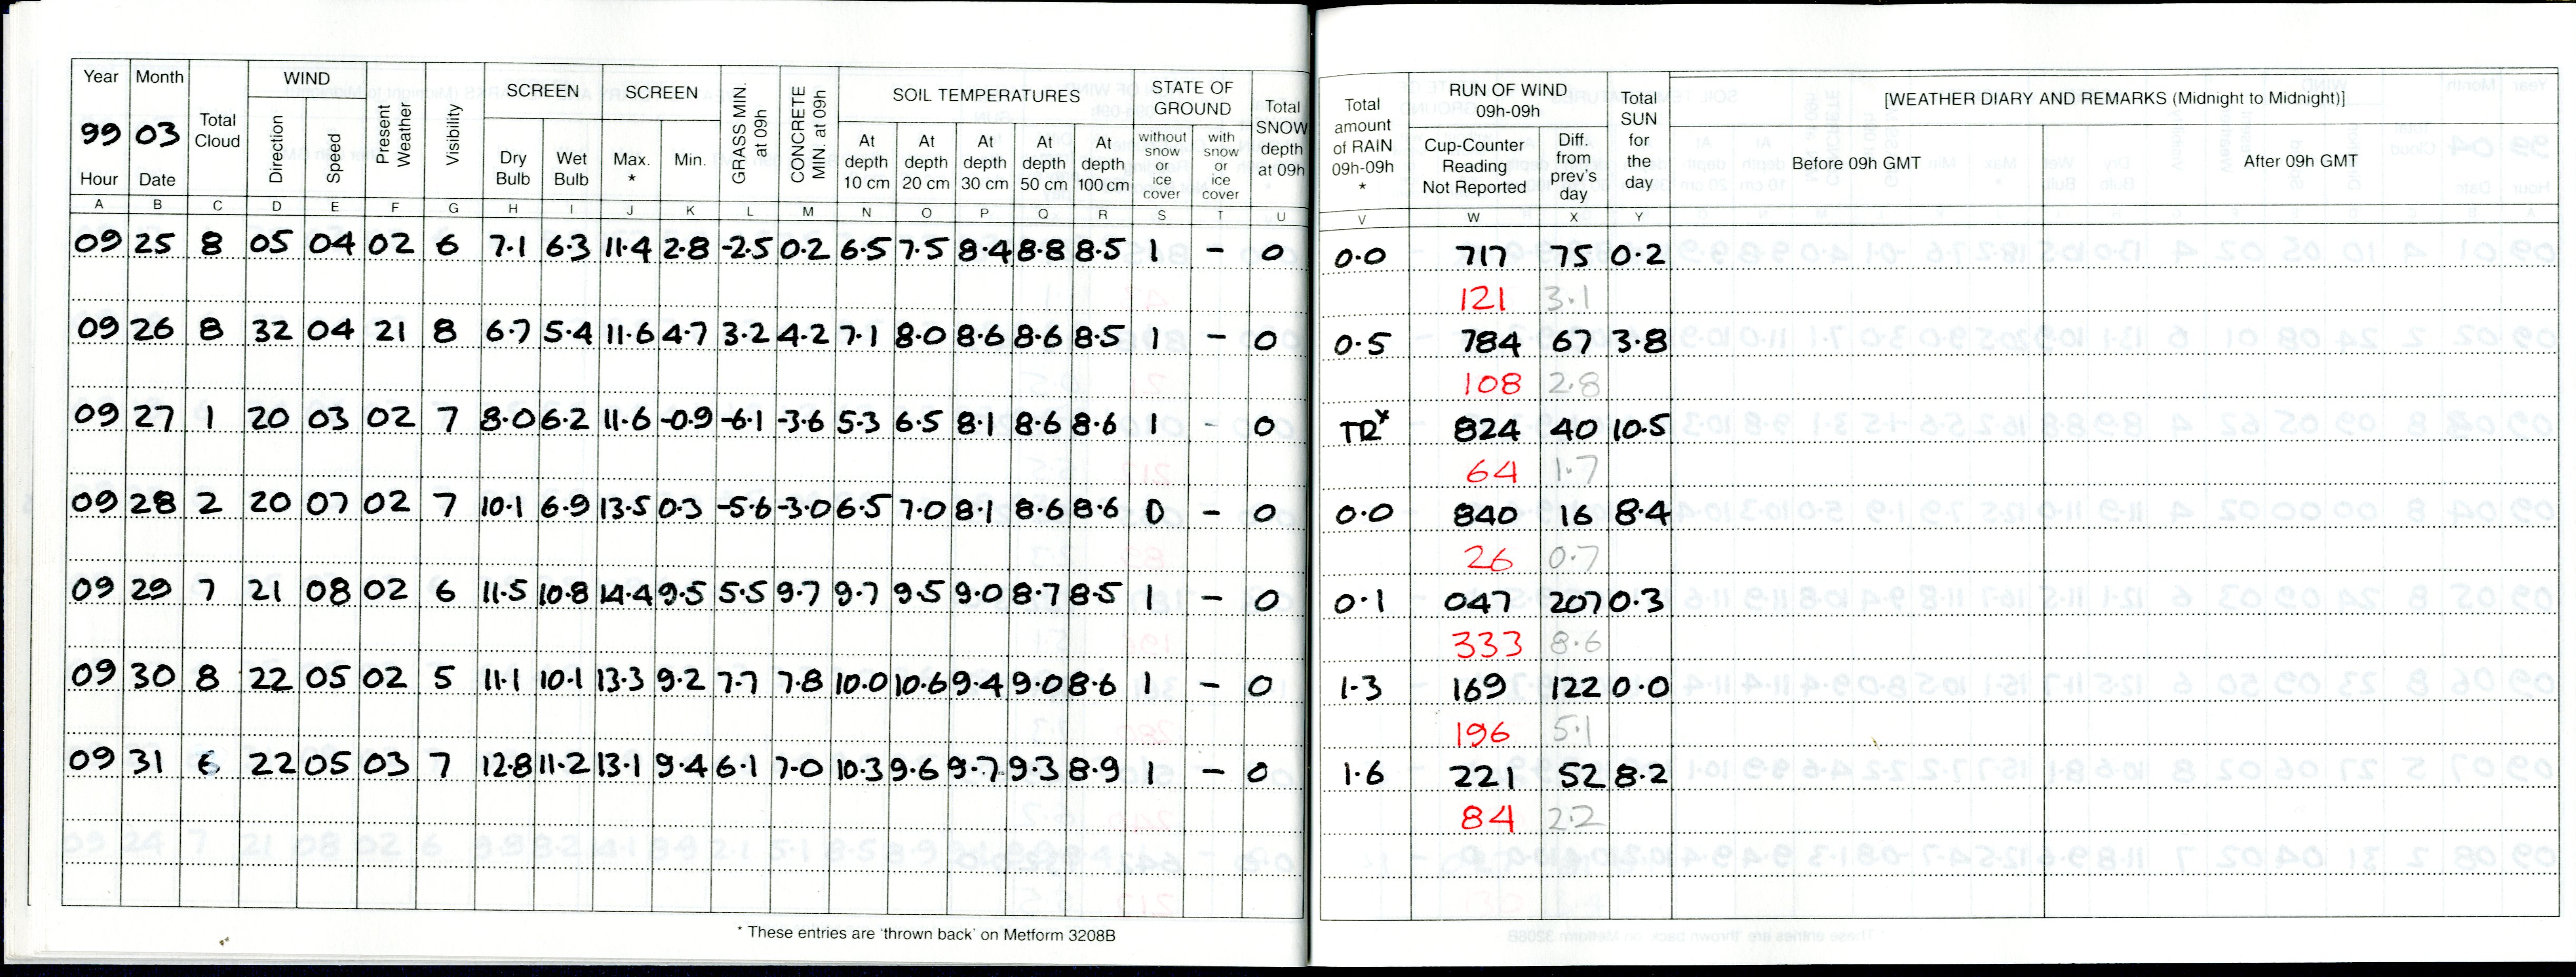 Year Month Total Cloud WIND Present Weather Visibility SCREEN SCREEN GRASS MIN. at 09h CONCRETE MIN. at 09h SOIL TEMPERATURES STATE OF GROUND Total SNOW depth at 09h Total amount of RAIN 09h-09h * RUN OF WIND 09h-09h Total SUN for the day [WEATHER DIARY AND REMARKS (Midnight to Midnight)]
99 03 Direction Speed Dry Bulb Wet Bulb Max. * Min. At depth 10 cm At depth 20 cm At depth 30 cm At depth 50 cm At depth 100 cm without snow or ice cover with snow or ice cover Cup-Counter Reading Not Reported Diff. from prev's day Before 09h GMT After 09h GMT
Hour Date
A B C D E F G H I J K L M N O P Q R S T U V W X Y
09 25 8 05 04 02 6 7.1 6.3 11.4 2.8 -2.5 0.2 6.5 7.5 8.4 8.8 8.5 1 - 0 0.0 717 75 0.2
121 3.1
09 26 8 32 04 21 8 6.7 5.4 11.6 4.7 3.2 4.2 7.1 8.0 8.6 8.6 8.5 1 - 0 0.5 784 67 3.8
108 2.8
09 27 1 20 03 02 7 8.0 6.2 11.6 -0.9 -6.1 -3.6 5.3 6.5 8.1 8.6 8.6 1 - 0 TR* 824 40 10.5
64 1.7
09 28 2 20 07 02 7 10.1 6.9 13.5 0.3 -5.6 -3.0 6.5 7.0 8.1 8.6 8.6 0 - 0 0.0 840 16 8.4
26 0.7
09 29 7 21 08 02 6 11.5 10.8 14.4 9.5 5.5 9.7 9.7 9.5 9.0 8.7 8.5 1 - 0 0.1 047 207 0.3
333 8.6
09 30 8 22 05 02 5 11.1 10.1 13.3 9.2 7.7 7.8 10.0 10.6 9.4 9.0 8.6 1 - 0 1.3 169 122 0.0
196 5.1
09 31 6 22 05 03 7 12.8 11.2 13.1 9.4 6.1 7.0 10.3 9.6 9.7 9.3 8.9 1 - 0 1.6 221 52 8.2
84 2.2
* These entries are 'thrown back' on Metform 3208B